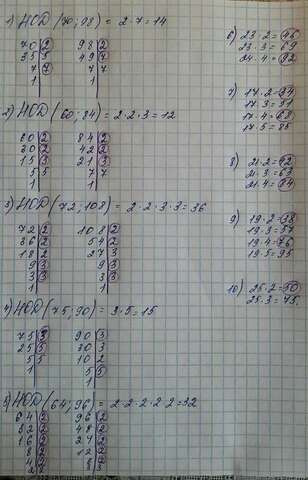 1) НОД (70; 98) = 2·7 = 14
70|2 98|2
35|5 49|7
7|7 7|7
1| 1|
2) НОД (60; 84) = 2·2·3 = 12
60|2 84|2
30|2 42|2
15|3 21|3
5|5 7|7
1| 1|
3) НОД (72; 108) = 2·2·3·3 = 36
72|2 108|2
36|2 54|2
18|2 27|3
9|3 9|3
3|3 3|3
1| 1|
4) НОД (75; 90) = 3·5 = 15
75|3 90|3
25|5 30|3
5|5 10|2
1| 5|5
1|
5) НОД (64; 96) = 2·2·2·2·2 = 32
64|2 96|2
32|2 48|2
16|2 24|2
8|2 12|2
4|2
6) 23·2 = 46
23·3 = 69
23·4 = 92
7) 17·2 = 34
17·3 = 51
17·4 = 68
17·5 = 85
8) 21·2 = 42
21·3 = 63
21·4 = 84
9) 19·2 = 38
19·3 = 57
19·4 = 76
19·5 = 95
10) 25·2 = 50
25·3 = 75